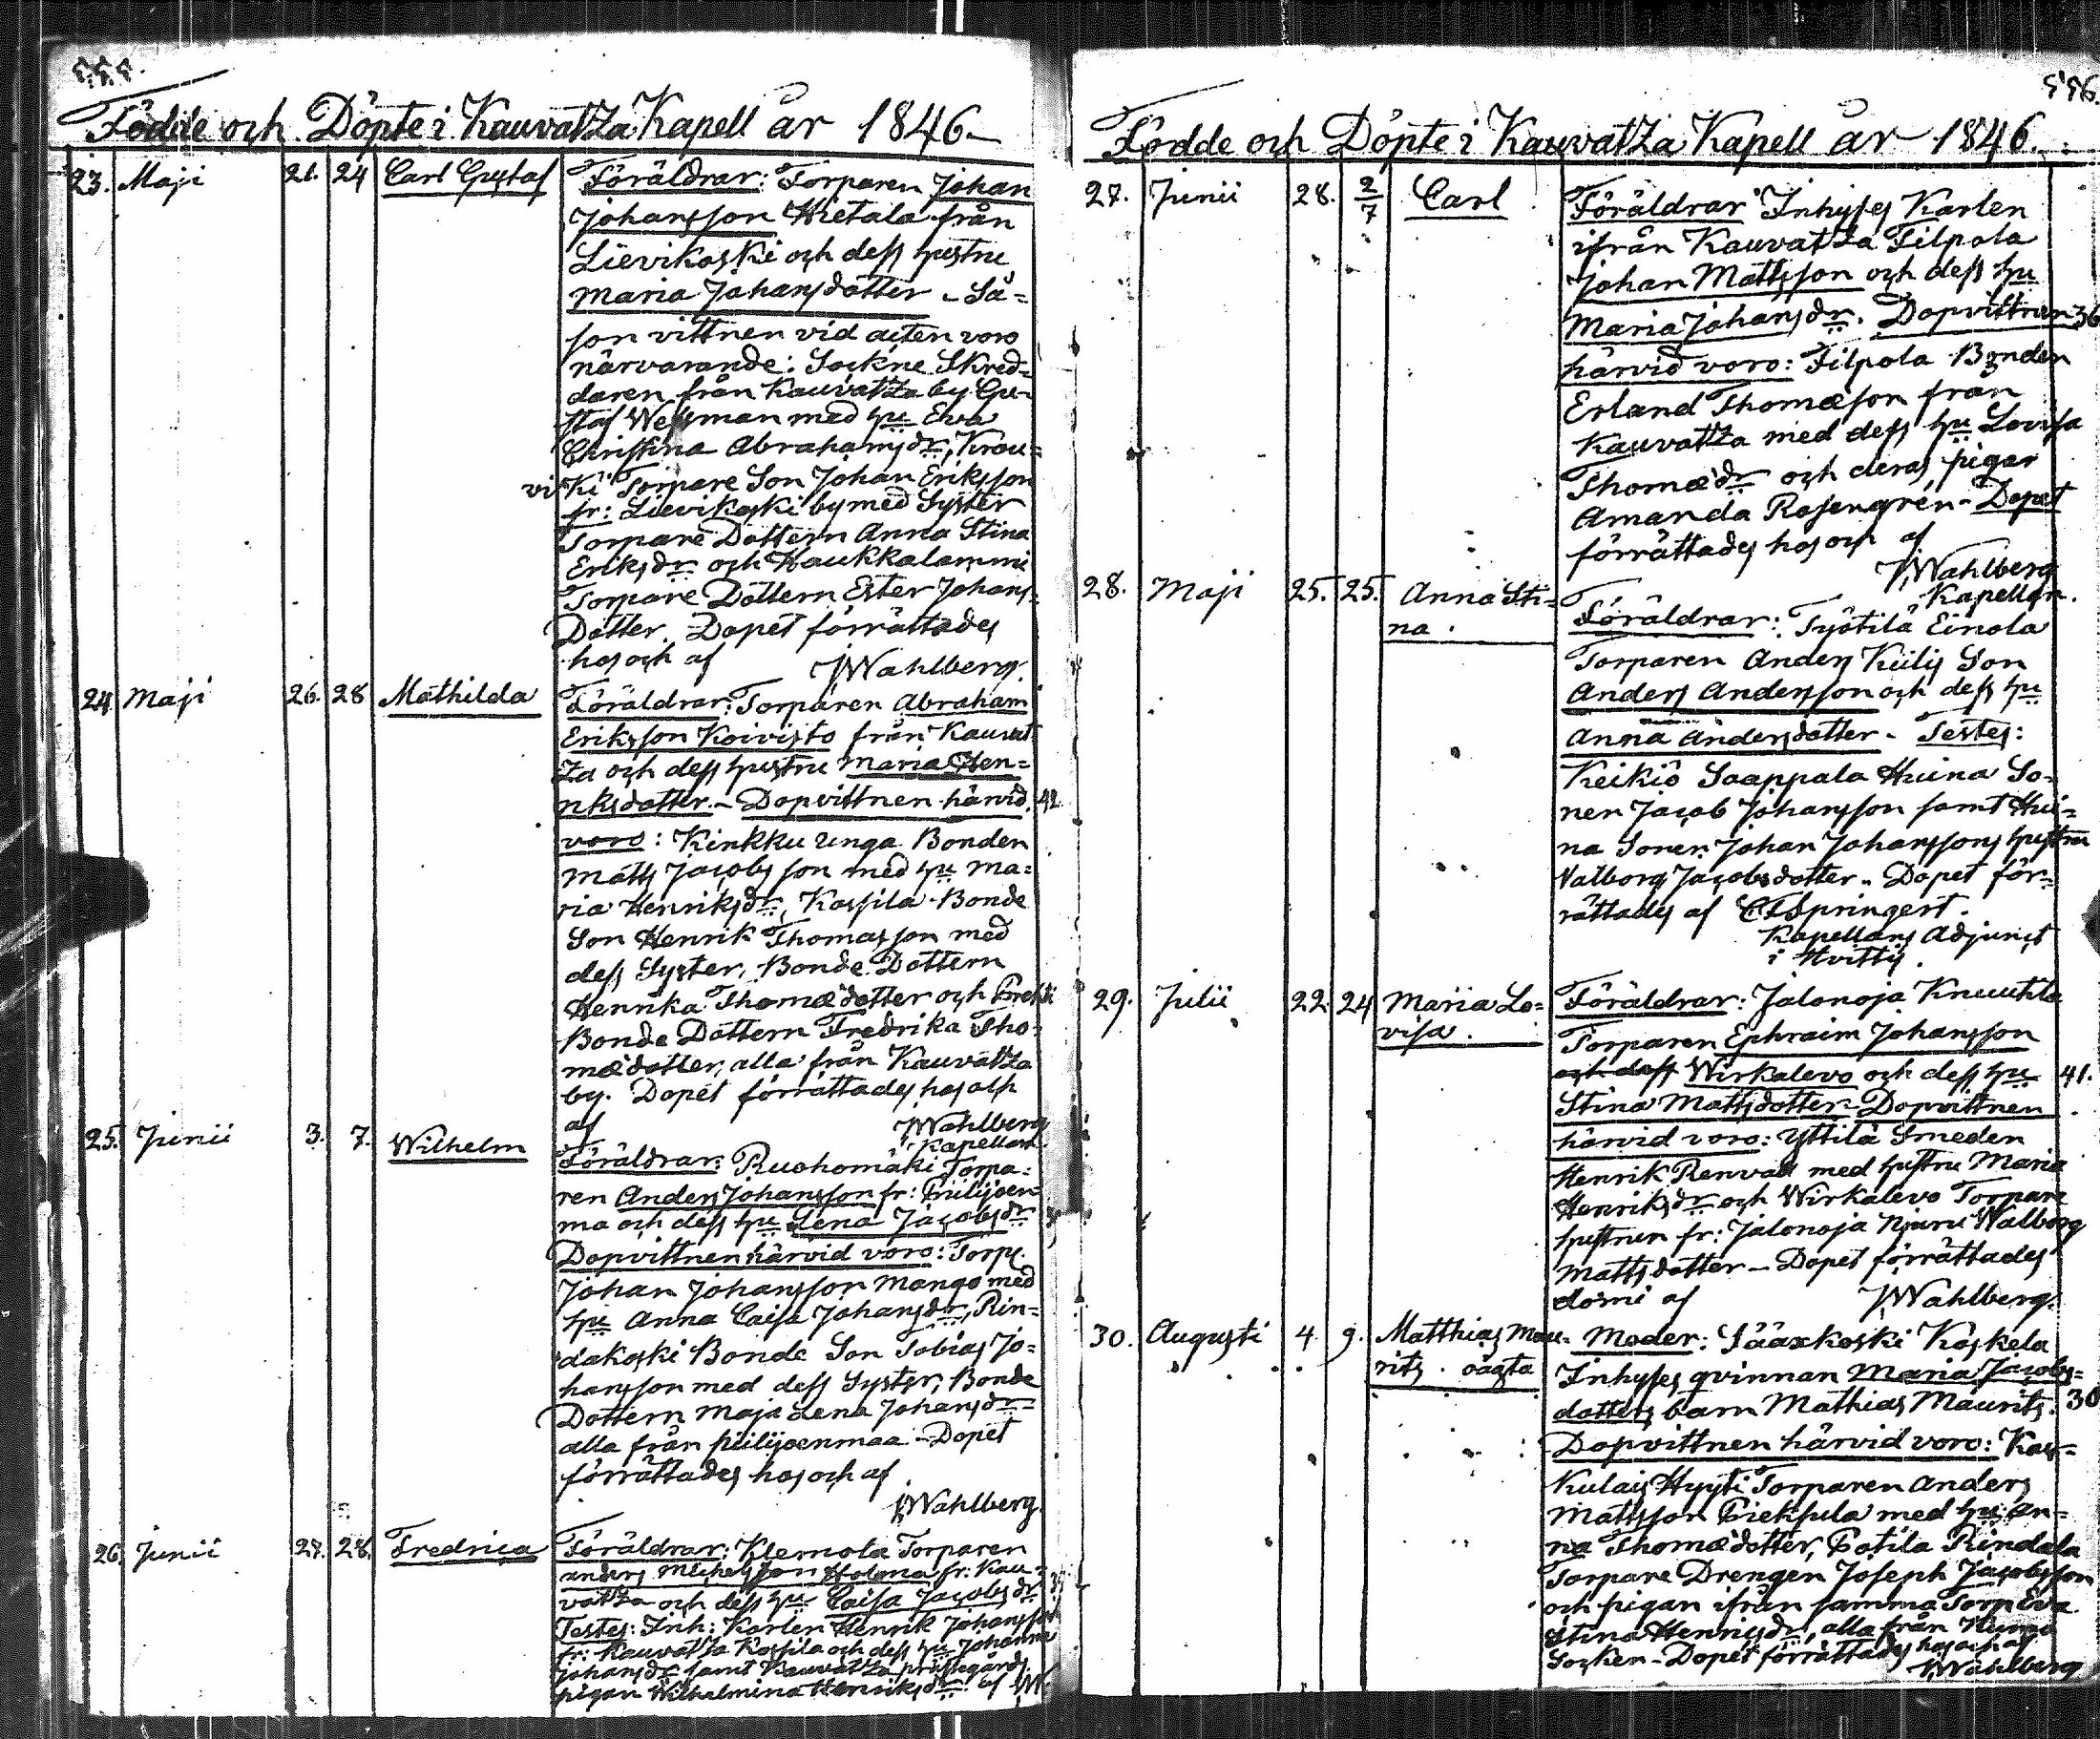 555.
Födde och Döpte i Kauvatza Kapell år 1846.
23. Maji 21. 24 Carl Gustaf Föräldrar: Torparen Johan
Johansson Hietala från
Lievikoski och dess hustru
Maria Johansdotter - Så=
son vittnen vid acten voro
närvarande: Sockne Skred=
daren från Kauvatza by Gu=
staf Wessman med hu Eva
Christina Abrahamsdr, Krou=
viski Torpare Son Johan Eriksson
fr: Lievikoski by med Syster
Torpare Dottern Anna Stina
Eriksdr och Haukkalammi
Torpare Dottern Ester Johans=
Dotter. Dopet förrättades
hos och af JWahlberg.
24 Maji 26. 28 Mathilda Föräldrar: Torparen Abraham
Eriksson Koivisto från Kauvat
za och dess hustru Maria Hen=
riksdotter. - Dopvittnen härvid 42
voro: Kinkku unga Bonden
Matts Jacobsson med hu Ma=
ria Henriksdr, Kassila Bonde
Son Henrik Thomasson med
dess Syster, Bonde Dottern
Henrika Thomædotter och
Bonde Dottern Fredrika Tho=
mædotter, alla från Kauvatza
by. Dopet förrättades hos och
af JWahlberg
Kapellan.
25. Junii 3. 7. Wilhelm Föräldrar: Ruohomäki Torpa=
ren Anders Johansson fr: Piilijoen=
ma och dess hu Lena Jacobsdr
Dopvittnen härvid voro: Torp.
Johan Johansson Mango med
hu Anna Caisa Johansdr, Rin=
dakoski Bonde Son Tobias Jo=
hansson med dess Syster, Bonde
Dottern Maja Lena Johansdr
alla från Piilijoenmaa - Dopet
förrättades hos och af
JWahlberg.
26. Junii 27. 28. Fredrica Föräldrar: Klemola Torparen
Anders Michelsson Holma fr: Kau=
vatza och dess hu Caisa Jacobsdr
Testes: Inh: Karlen Henrik Johansson
fr: Kauvatza Kassila och dess hu Johanna
Johansdr samt Kauvatza prästegårds
pigan Wilhelmina Henriksdr. af JW.
556.
Födde och Döpte i Kauvatza Kapell år 1846.
27. Junii 28. 2/7 Carl Föräldrar Inhyses Karlen
ifrån Kauvatza Filpola
Johan Mattsson och dess hu
Maria Johansdr. Dopvittnen 36
härvid voro: Filpola Bonden
Erland Thomæson från
Kauvatza med dess hu Lovisa
Thomædr och deras pigar
Amanda Rosengrén - Dopet
förrättades hos och af
JWahlberg
Kapellan.
28. Maji 25. 25. Anna Sti=
na. Föräldrar: Työtilä Einola
Torparen Anders Kiilis Son
Anders Andersson och dess hu
Anna Andersdotter - Testes:
Keikiö Saappala Huina So=
nen Jacob Johansson samt Hui=
na Sonen Johan Johanssons hustru
Valborg Jacobsdotter. Dopet för=
rättades af CTSpringert.
Kapellans Adjunct
i Hvittis.
29. Julii 22 24 Maria Lo=
visa. Föräldrar: Jalonoja Knuutila
Torparen Ephraim Johansson
och dess Wirkalevo och dess hu 41.
Stina Mattsdotter - Dopvittnen
härvid voro: Yttilä Smeden
Henrik Renvall med hustru Maria
Henriksdr och Wirkalevo Torpare
hustrun fr: Jalonoja Njuru Walborg
Mattsdotter - Dopet förrättades
domi af JWahlberg.
30. Augusti 4 9. Matthias Mau=
rits. oägta Moder: Sääxkoski Koskela
Inhyses qvinnan Maria Jacobs=
dotters barn Mathias Maurits. 30
Dopvittnen härvid voro: Kos=
Kulais Hyyti Torparen Anders
Mattsson Pieksula med hu An=
na Thomædotter, Potila Rindala
Torpare Drengen Joseph Jacobsson
och pigan ifrån samma Torp Eva
Stina Henricsdr, alla från Kumo
Socken - Dopet förrättades hos och af
JWahlberg